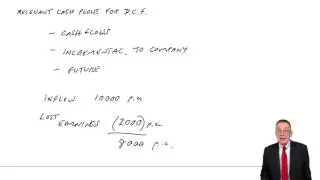 RELEVANT CASH FLOWS FOR D.C.F.
- CASH FLOWS
- INCREMENTAL, TO COMPANY
- FUTURE
INFLOW 10000 p.a
LOST
EARNINGS (2000) p.a
8000 p.a.